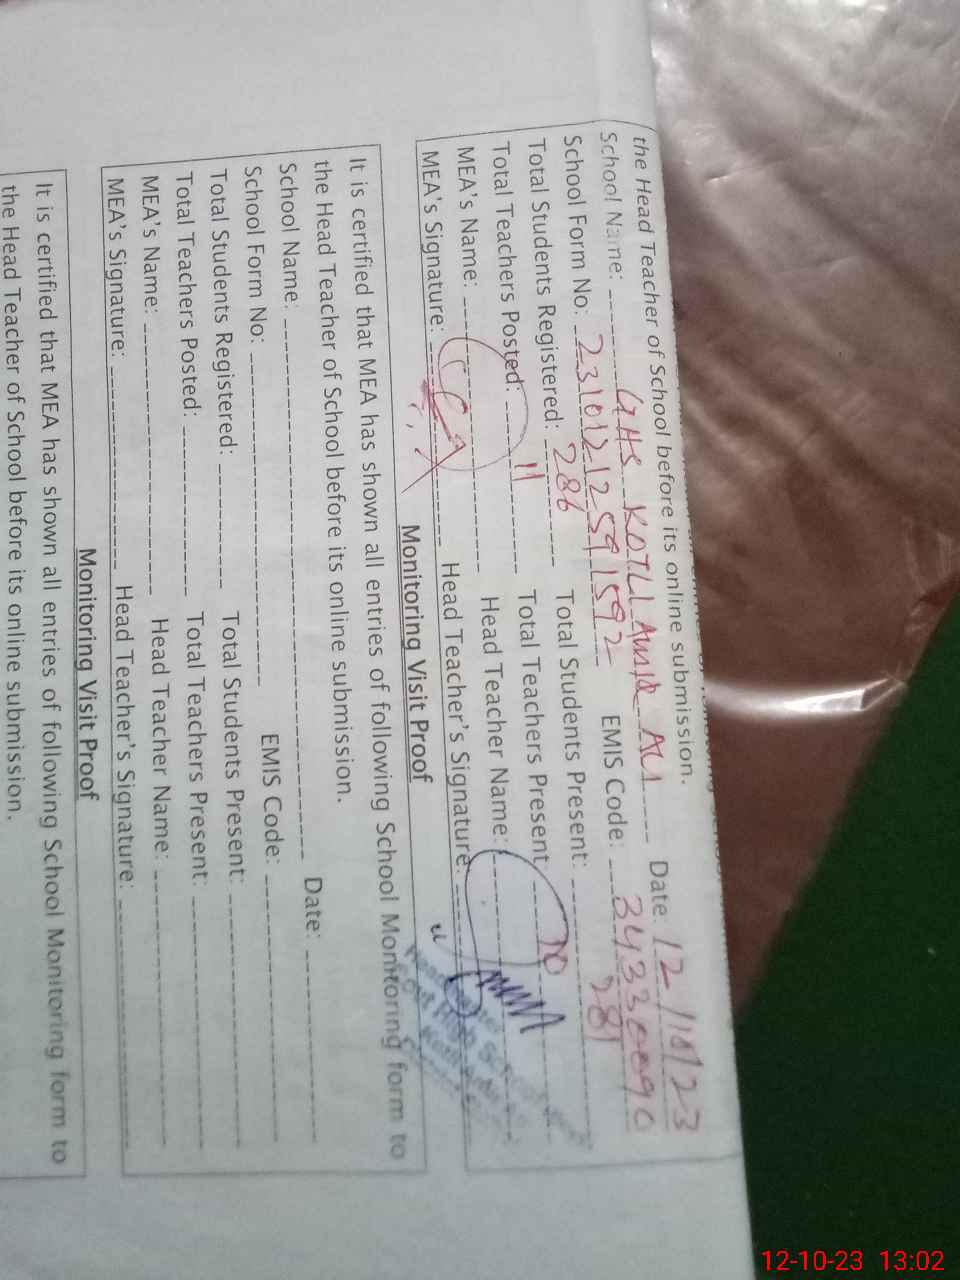 the Head Teacher of School before its online submission.
School Name: GHS KOTLI Date: 12/10/23
School Form No: 231012125 EMIS Code: 3433
Total Students Registered: 286 Total Students Present: 281
Total Teachers Posted: 11 Total Teachers Present: 10
MEA's Name: Head Teacher Name:
MEA's Signature: Head Teacher's Signature:
Monitoring Visit Proof
It is certified that MEA has shown all entries of following School Monitoring form to
the Head Teacher of School before its online submission.
School Name: Date:
School Form No: EMIS Code:
Total Students Registered: Total Students Present:
Total Teachers Posted: Total Teachers Present:
MEA's Name: Head Teacher Name:
MEA's Signature: Head Teacher's Signature:
Monitoring Visit Proof
It is certified that MEA has shown all entries of following School Monitoring form to
the Head Teacher of School before its online submission.
12-10-23 13:02